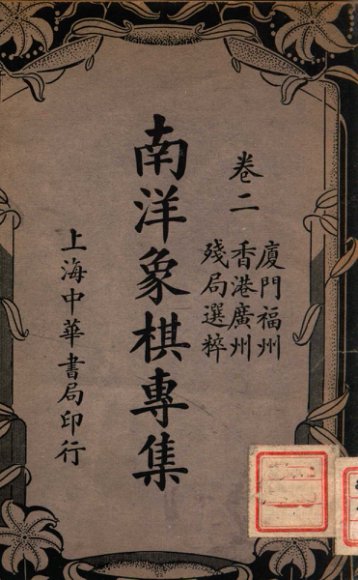 卷二
廈門福州
香港廣州
殘局選粹
南洋象棋專集
上海中華書局印行